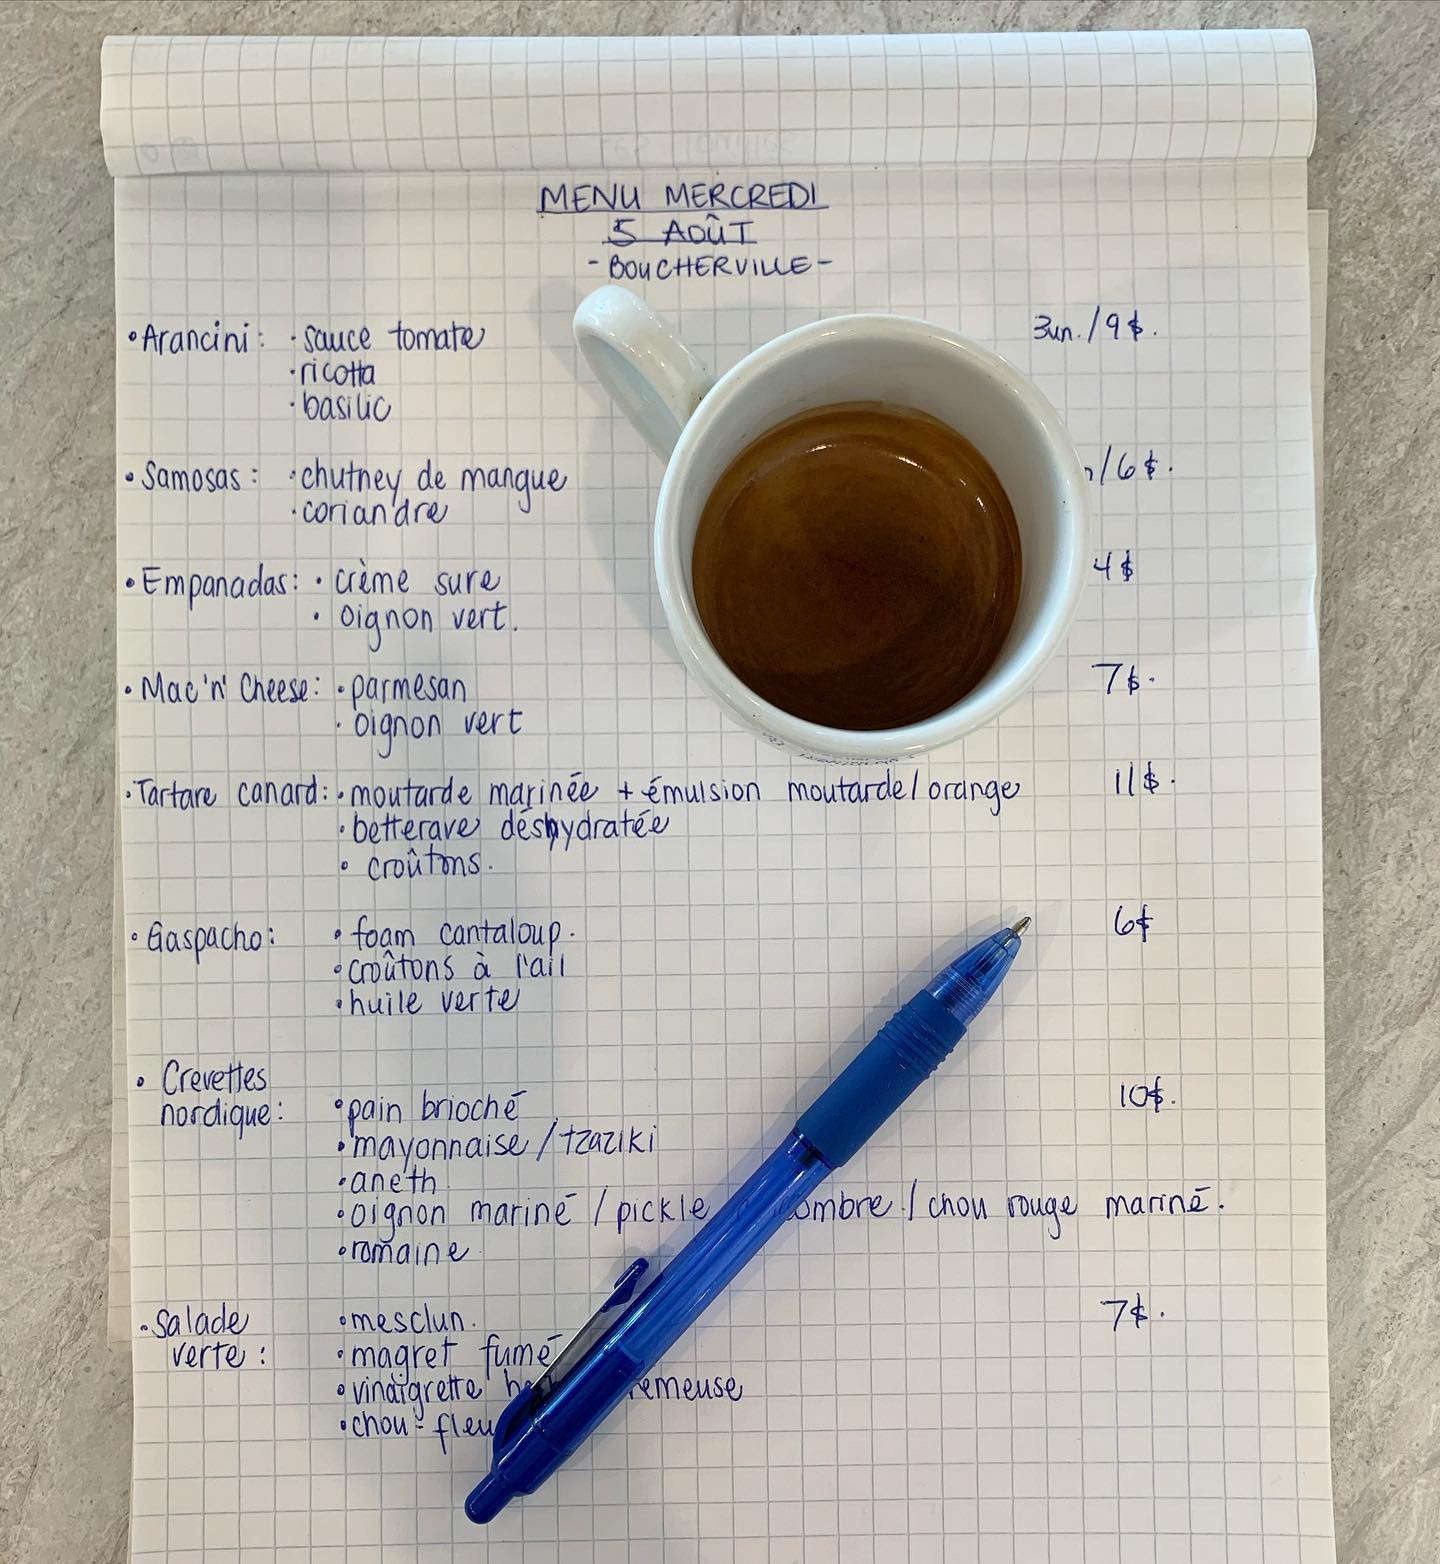 MENU MERCREDI
5 AOÛT
- BOUCHERVILLE -
• Arancini : · sauce tomate 3un. / 9$.
· ricotta
· basilic
• Samosas : · chutney de mangue /6$.
· coriandre
• Empanadas : · crème sure 4$
· oignon vert.
• Mac 'n' Cheese : · parmesan 7$.
· oignon vert
· Tartare canard : · moutarde marinée + émulsion moutarde/orange 11$.
· betterave déshydratée
• croûtons.
• Gaspacho : • foam cantaloup. 6$
• croûtons à l'ail
• huile verte
• Crevettes
nordique : • pain brioché 10$.
• mayonnaise / tzaziki
• aneth
• oignon mariné / pickle / chou rouge mariné.
• romaine
• Salade • mesclun. 7$.
verte : • magret fumé
• vinaigrette
• chou-